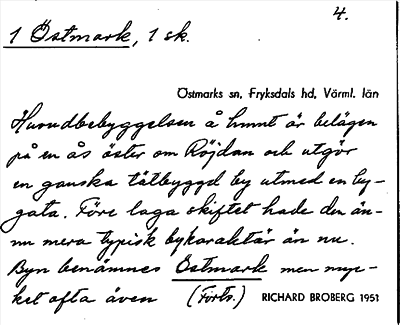 4.
1 Östmark, 1 sk.
Östmarks sn, Fryksdals hd, Värml. län
Huvudbebyggelsen å hmnt är belägen
på en ås öster om Röjdan och utgör
en ganska tätbyggd by utmed en by-
gata. Före laga skiftet hade den än-
nu mera typisk bykaraktär än nu.
Byn benämnes Östmark men myc-
ket ofta även (Forts.) RICHARD BROBERG 1951